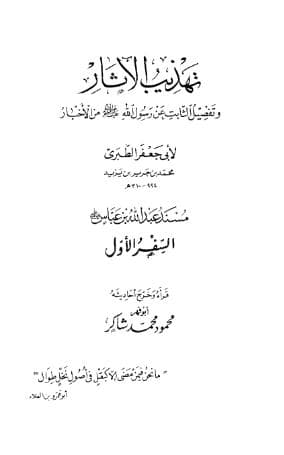 تهذيب الآثار
وتفصيل الثابت عن رسول الله ﷺ من الأخبار
لأبي جعفر الطبري
محمد بن جرير بن يزيد
٢٢٤ - ٣١٠ هـ
مسند عبد الله بن عباس
السفر الأول
قرأه وخرج أحاديثه
أبو فهر
محمود محمد شاكر
"ما نحن فيمن مضى إلا كبقل في أصول نخل طوال"
أبو عمرو بن العلاء